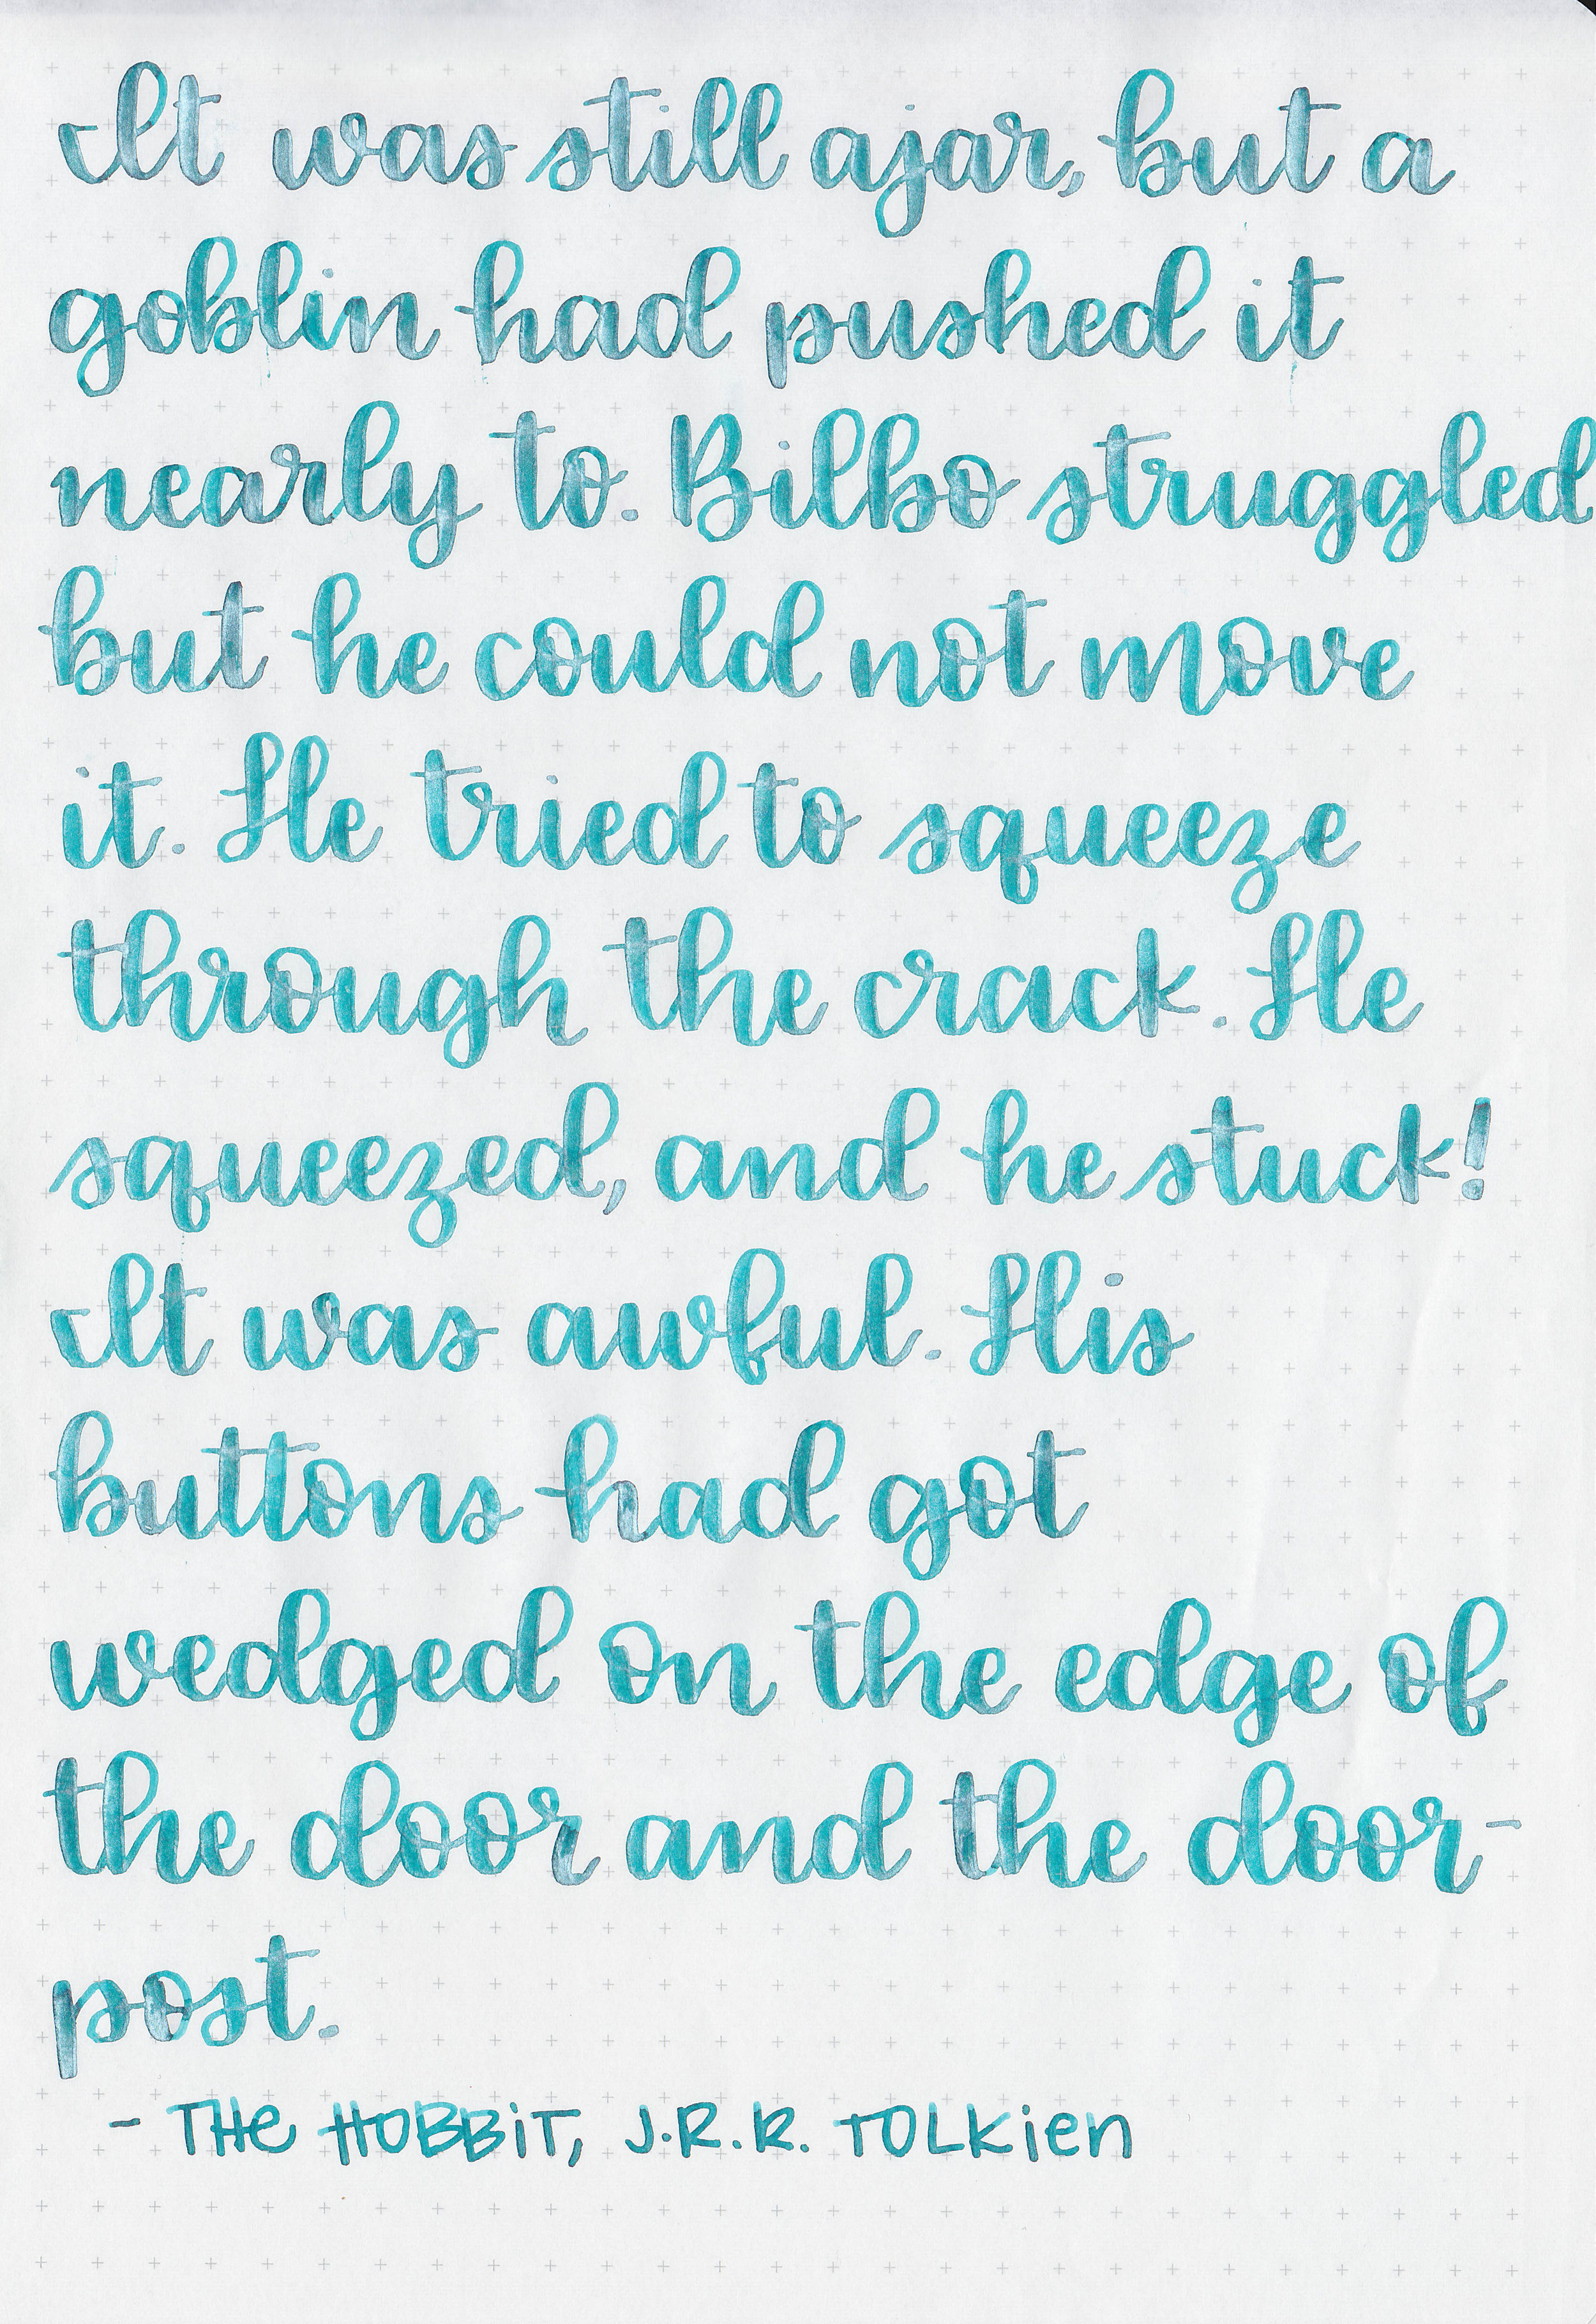 It was still ajar, but a
goblin had pushed it
nearly to. Bilbo struggled
but he could not move
it. He tried to squeeze
through the crack. He
squeezed, and he stuck!
It was awful. His
buttons had got
wedged on the edge of
the door and the door-
post.
- The Hobbit, J.R.R. Tolkien